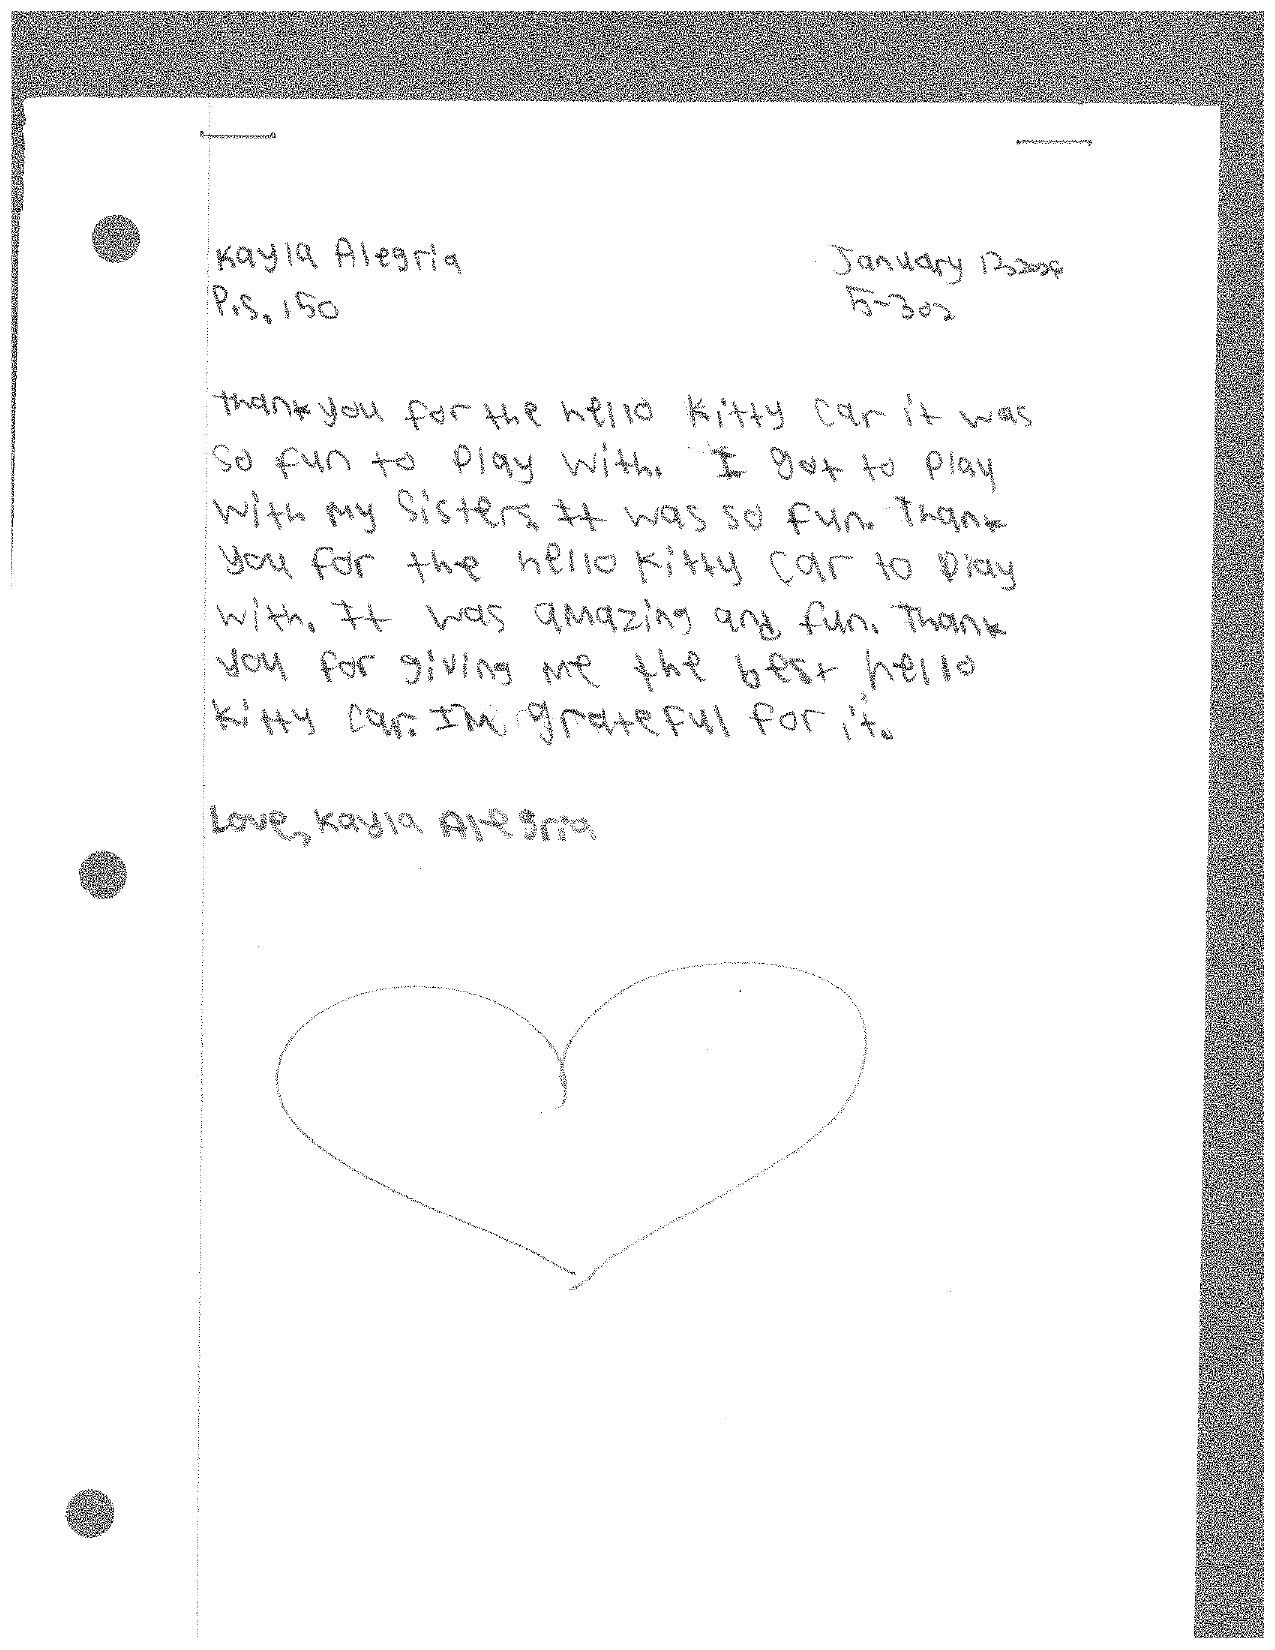 Kayla Alegria
January
P.S. 150
5-302
thank you for the hello Kitty car it was
so fun to play with. I got to play
with my sisters. It was so fun. Thank
you for the hello Kitty car to play
with. It was amazing and fun. Thank
you for giving me the best hello
Kitty car. Im grateful for it.
Love, Kayla Alegria